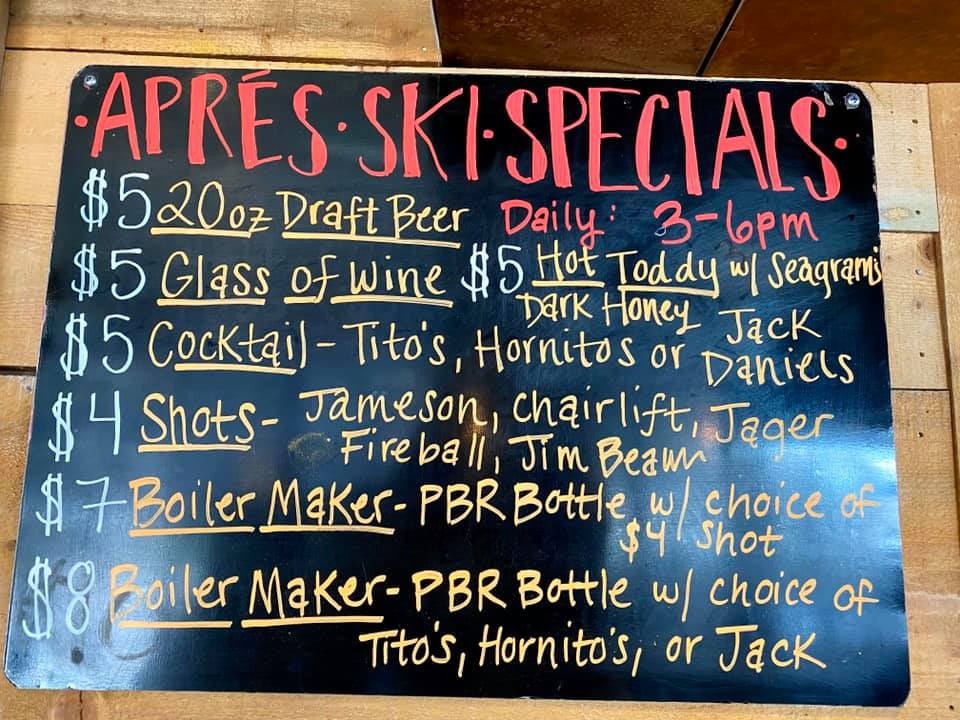 ·APRÉS·SKI·SPECIALS·
$5 20oz Draft Beer Daily: 3-6pm
$5 Glass of Wine $5 Hot Toddy w/ Seagram's
Dark Honey
$5 Cocktail - Tito's, Hornitos or Jack
Daniels
$4 Shots - Jameson, Chairlift, Jager
Fireball, Jim Beam
$7 Boiler Maker - PBR Bottle w/ choice of
$4 Shot
$8 Boiler Maker - PBR Bottle w/ choice of
Tito's, Hornito's, or Jack